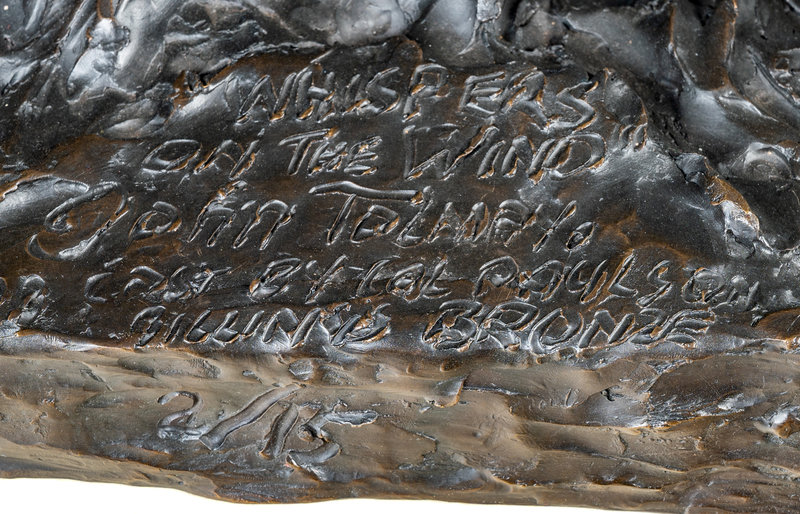 "WHISPERS
ON THE WIND"
John Tolmay.
CAST BY TOL PAULSON,
BILLINGS BRONZE
2/15